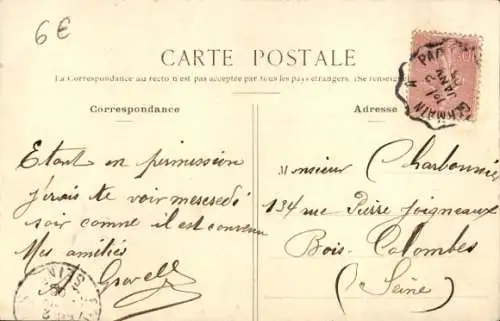 6€
CARTE POSTALE
La Correspondance au recto n'est pas acceptée par tous les pays étrangers. (Se renseigner
Correspondance
Adresse
Etant en permission
j'irais te voir mercredi
soir comme il est convenu
Mes amitiés
Gravell
Monsieur Charbonnier
134 rue Pierre Joigneaux
Bois-Colombes
(Seine)